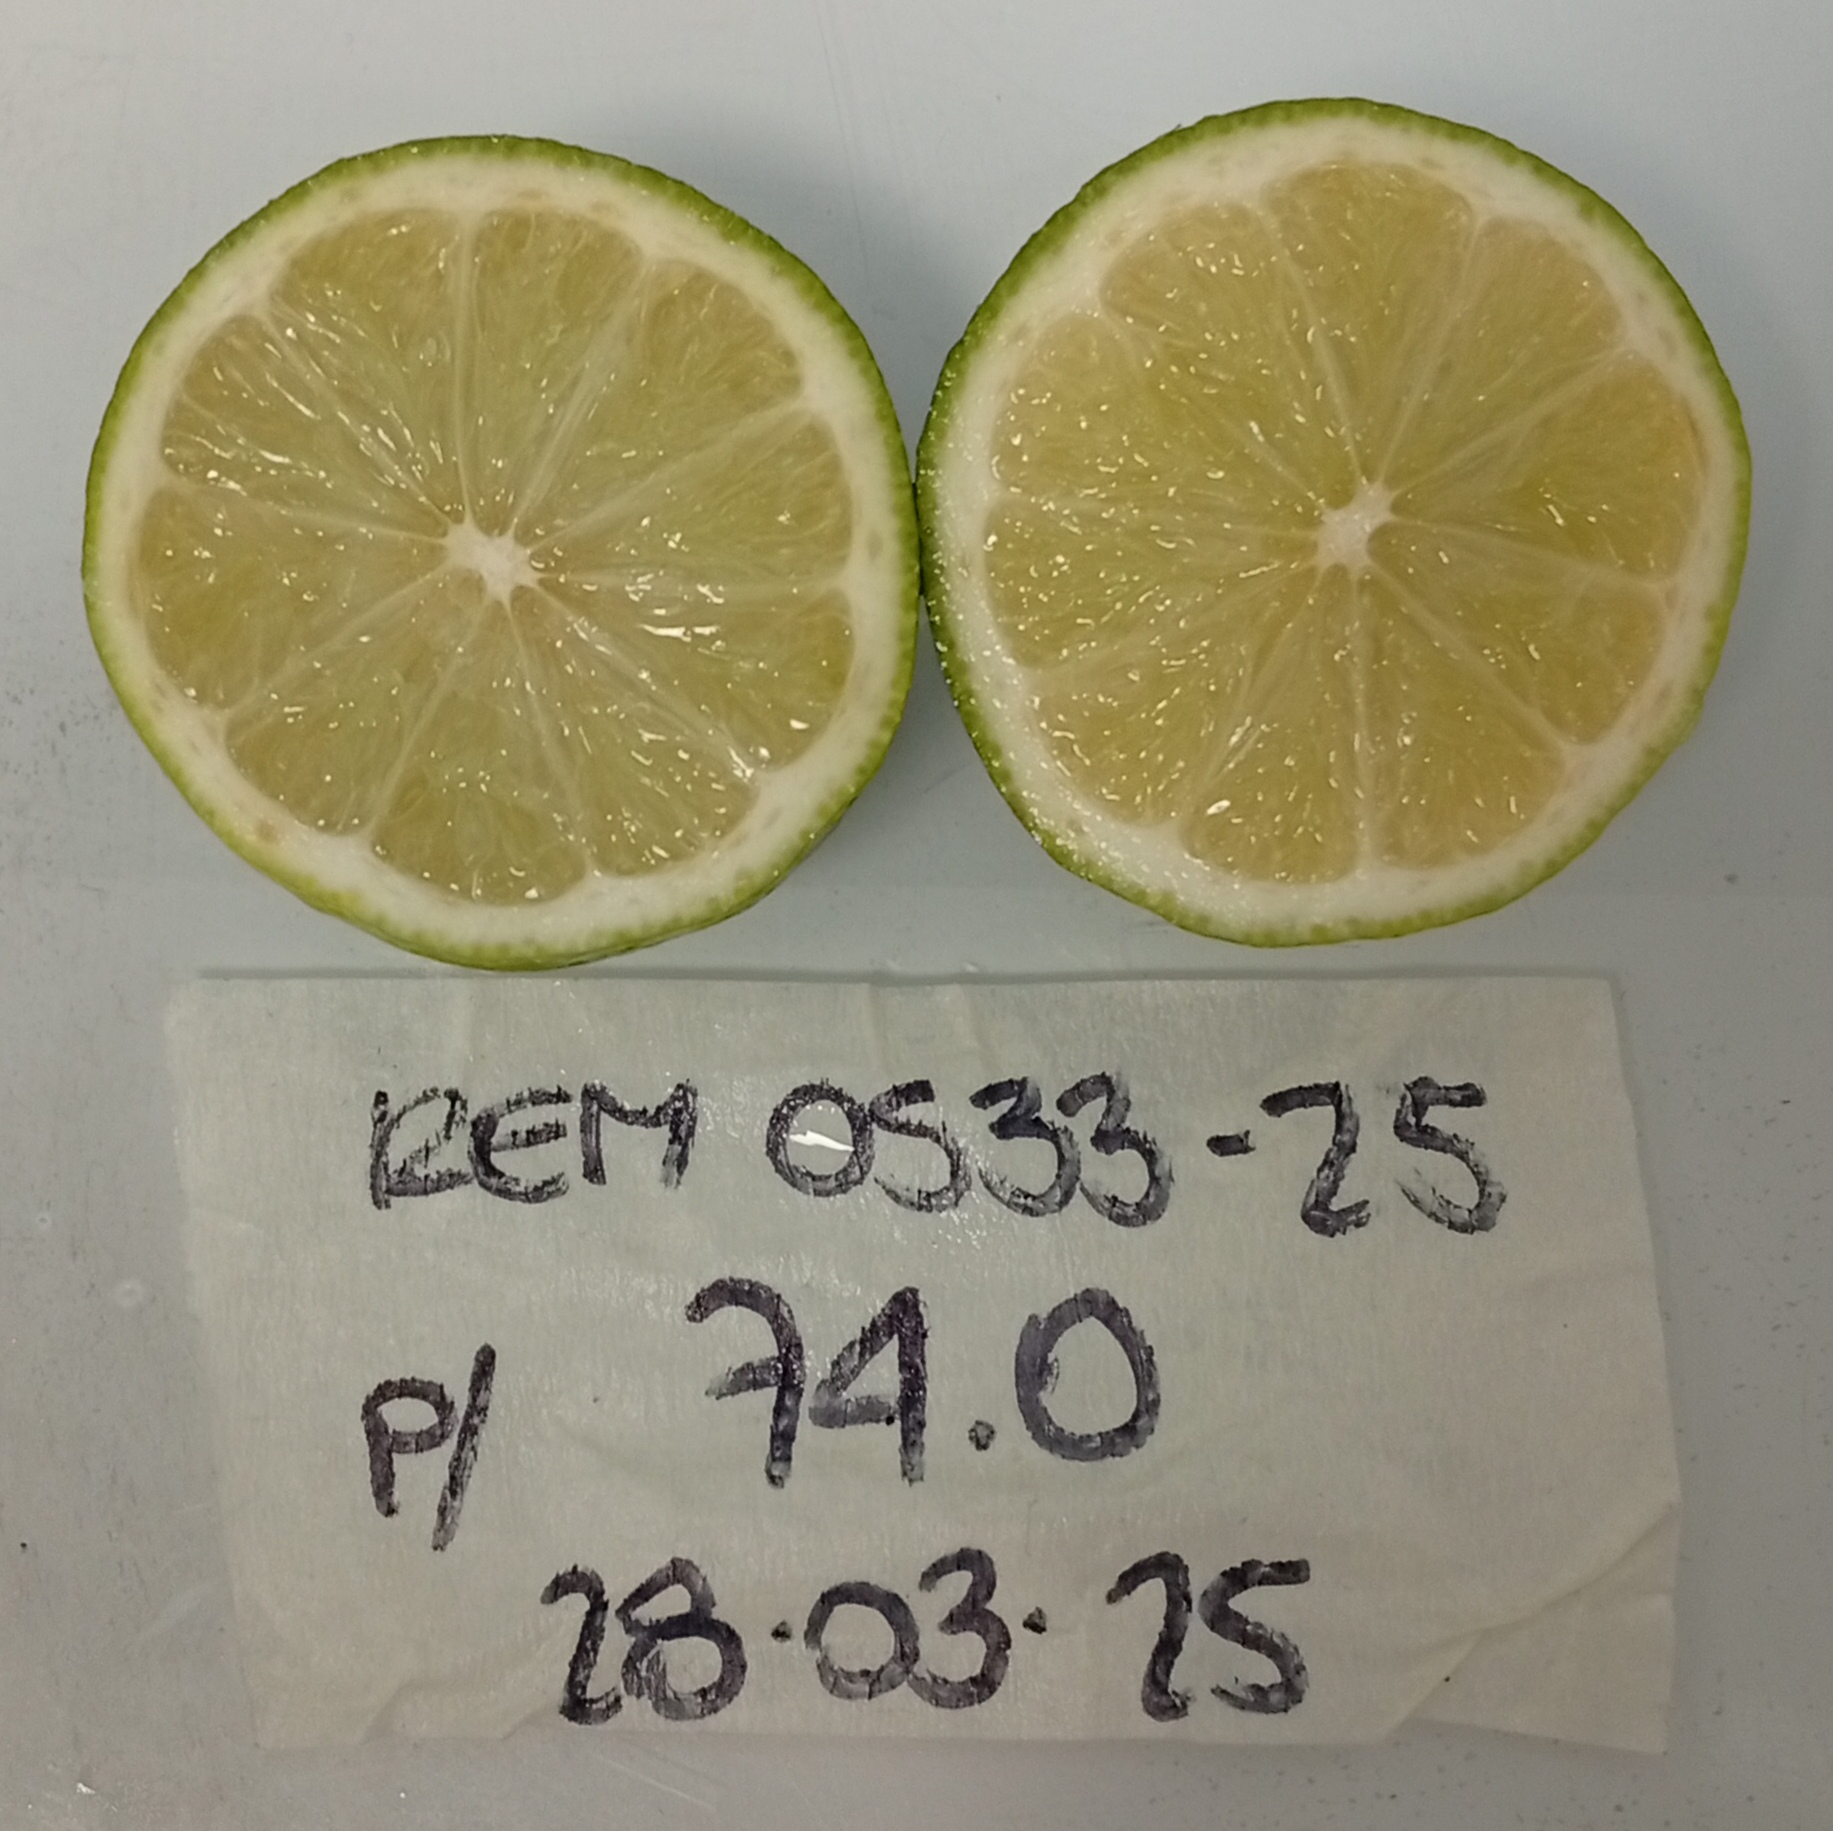 REM 0533-25
P/ 74.0
28.03.25